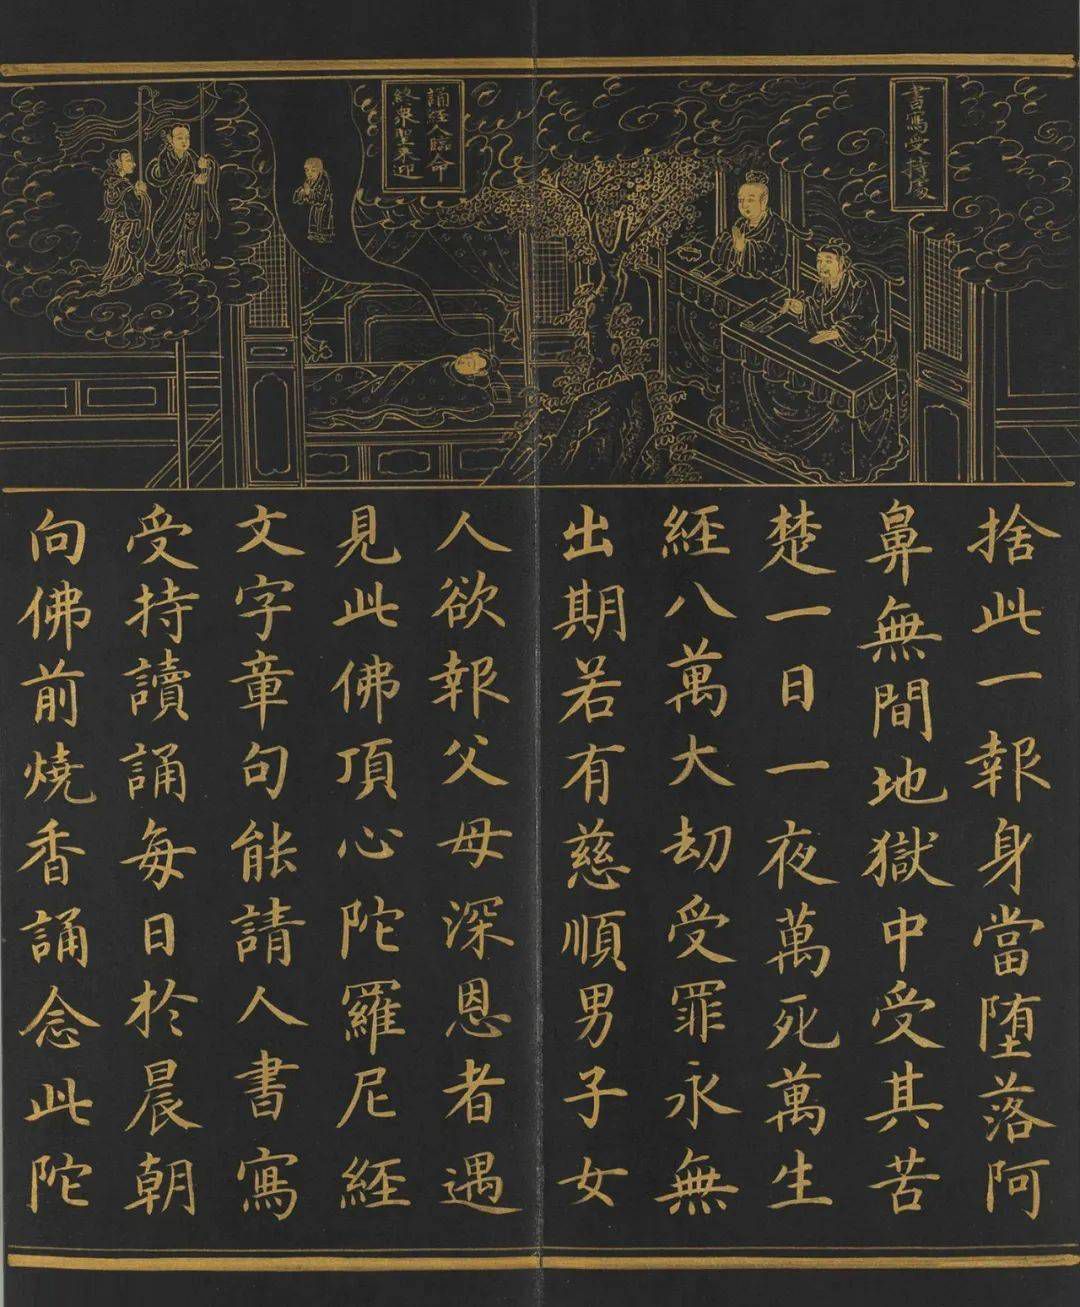 書寫受持處
誦經人臨命
終眾聖來迎
捨此一報身當堕落阿
鼻無間地獄中受其苦
楚一日一夜萬死萬生
經八萬大劫受罪永無
出期若有慈順男子女
人欲報父母深恩者遇
見此佛頂心陀羅尼經
文字章句能請人書寫
受持讀誦每日於晨朝
向佛前燒香誦念此陀